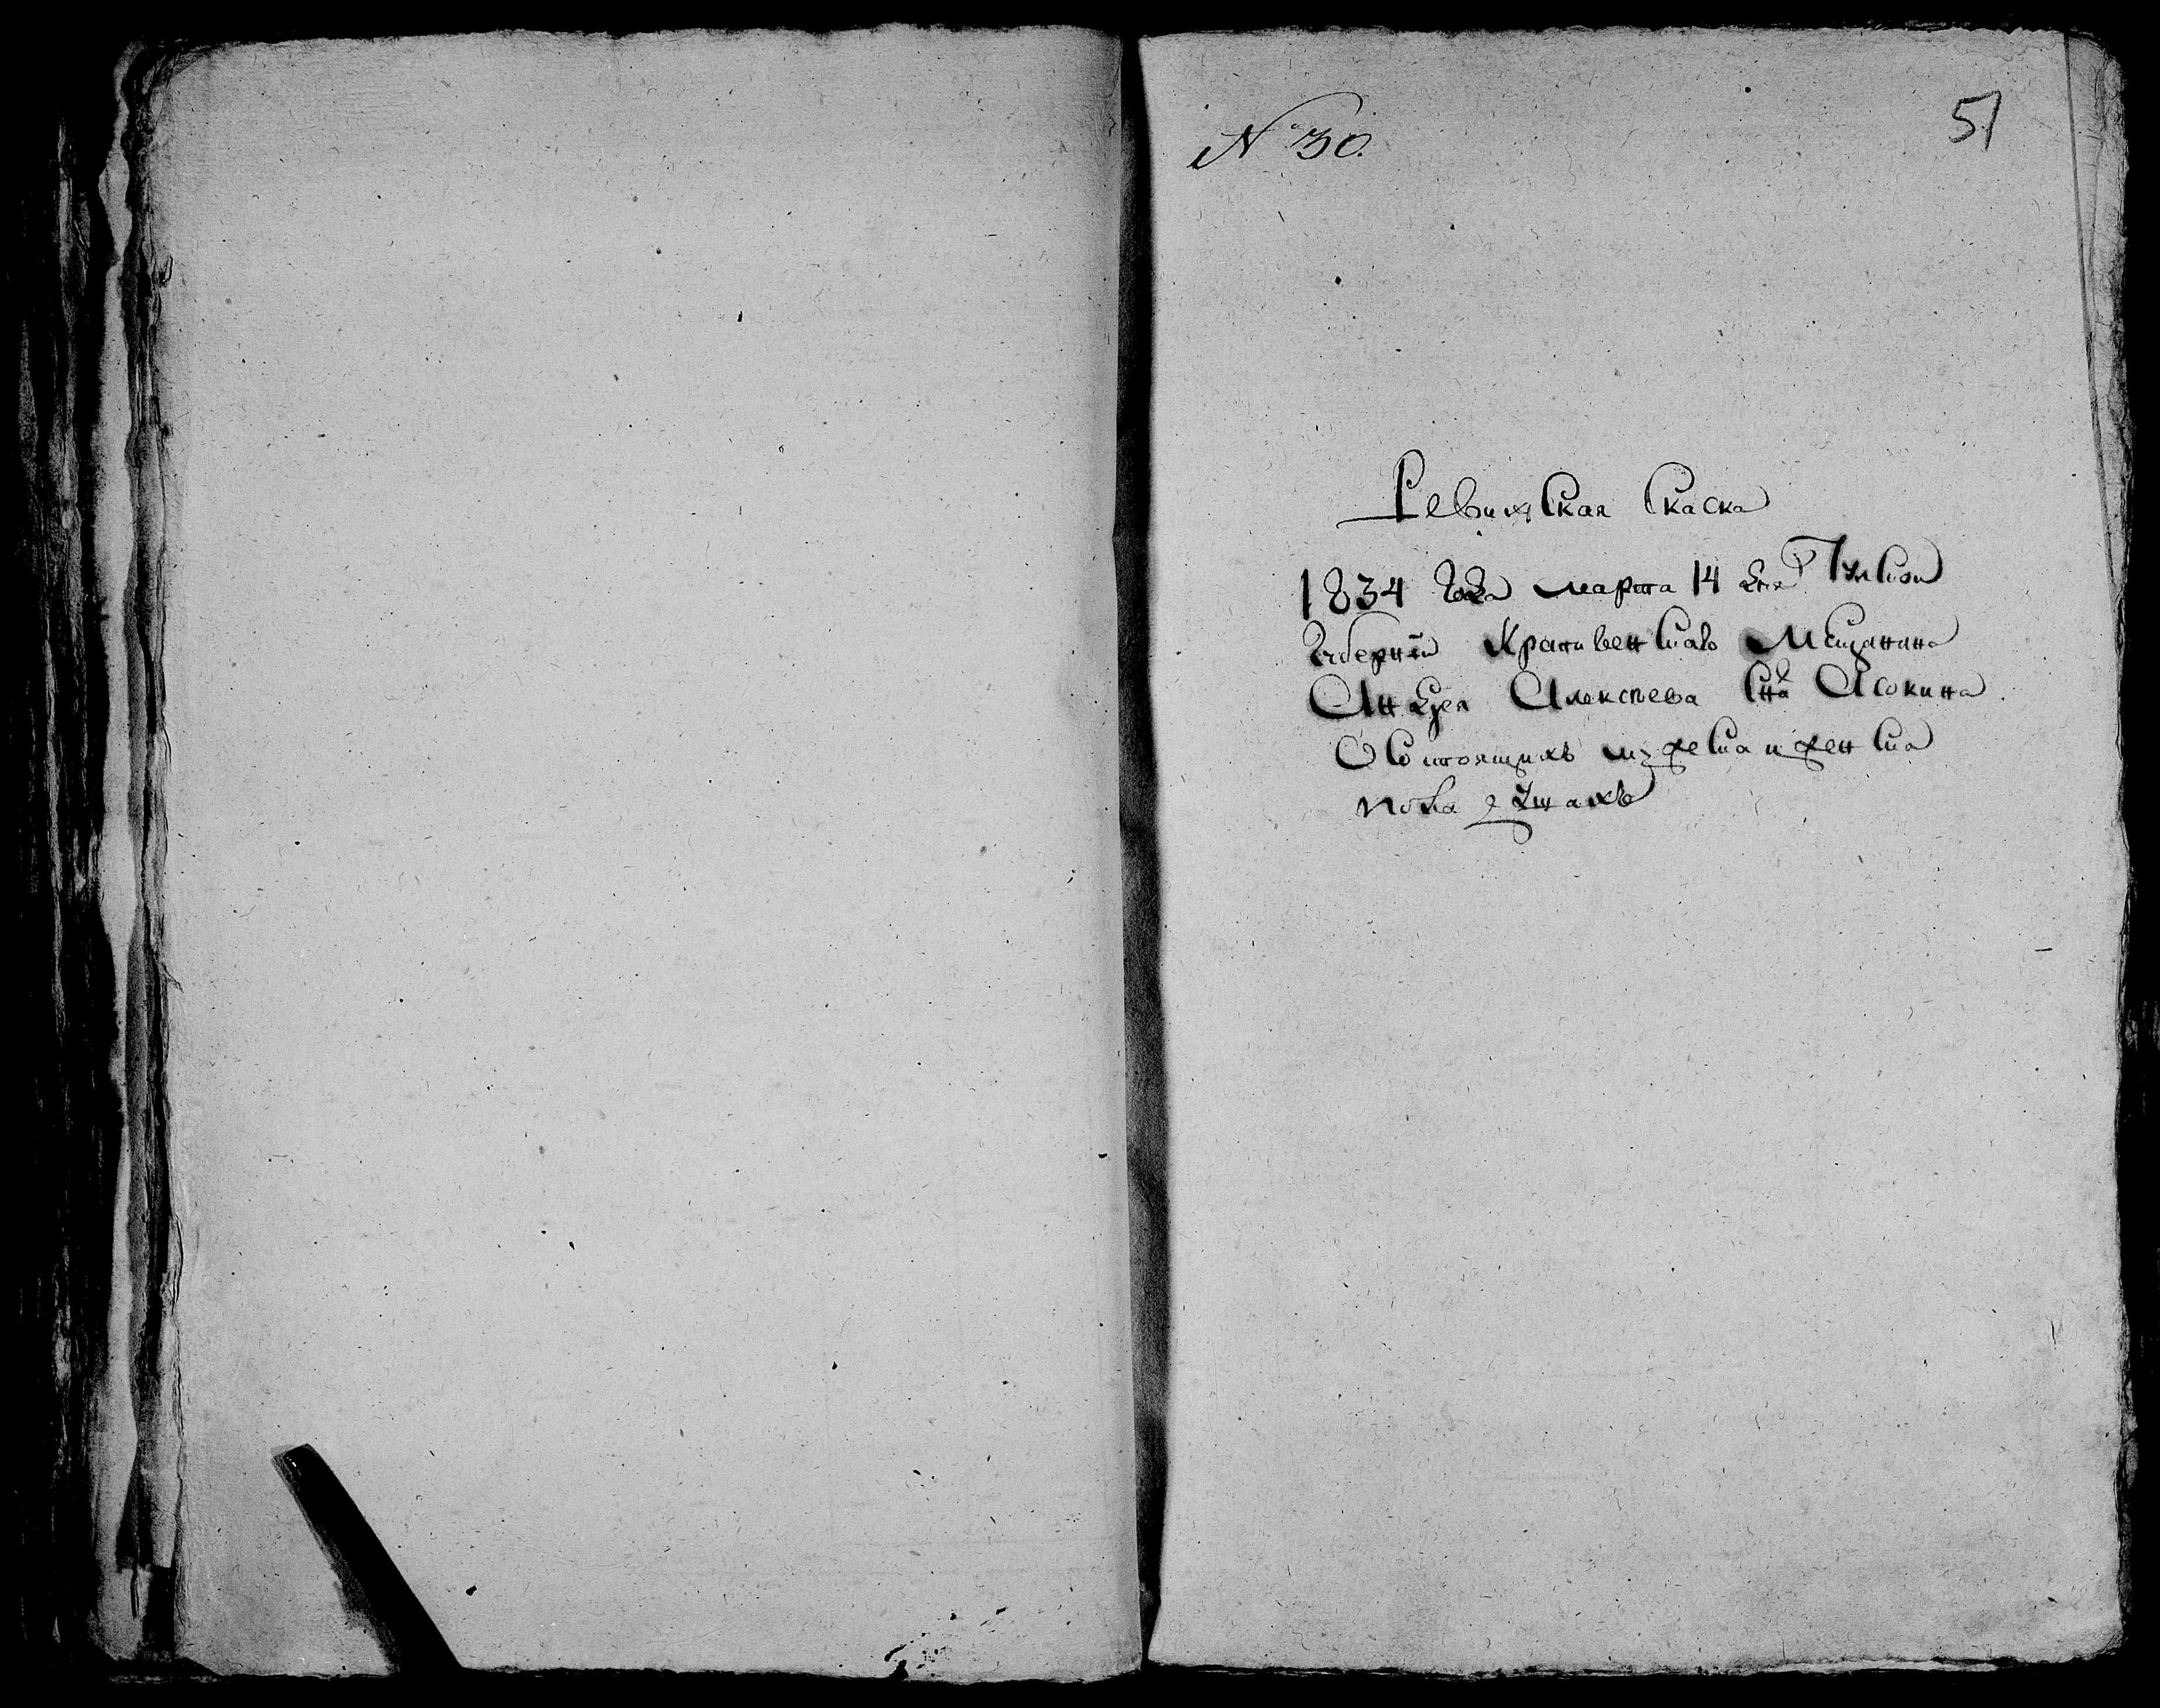 N 30.
51
Ревижская Скаска
1834 года марта 14 дня Тульской
Губернии Крапивенскаго Мещанина
Андрея Алексеева Сна Асокина
О состоящихъ мужеска и женска
пола душахъ